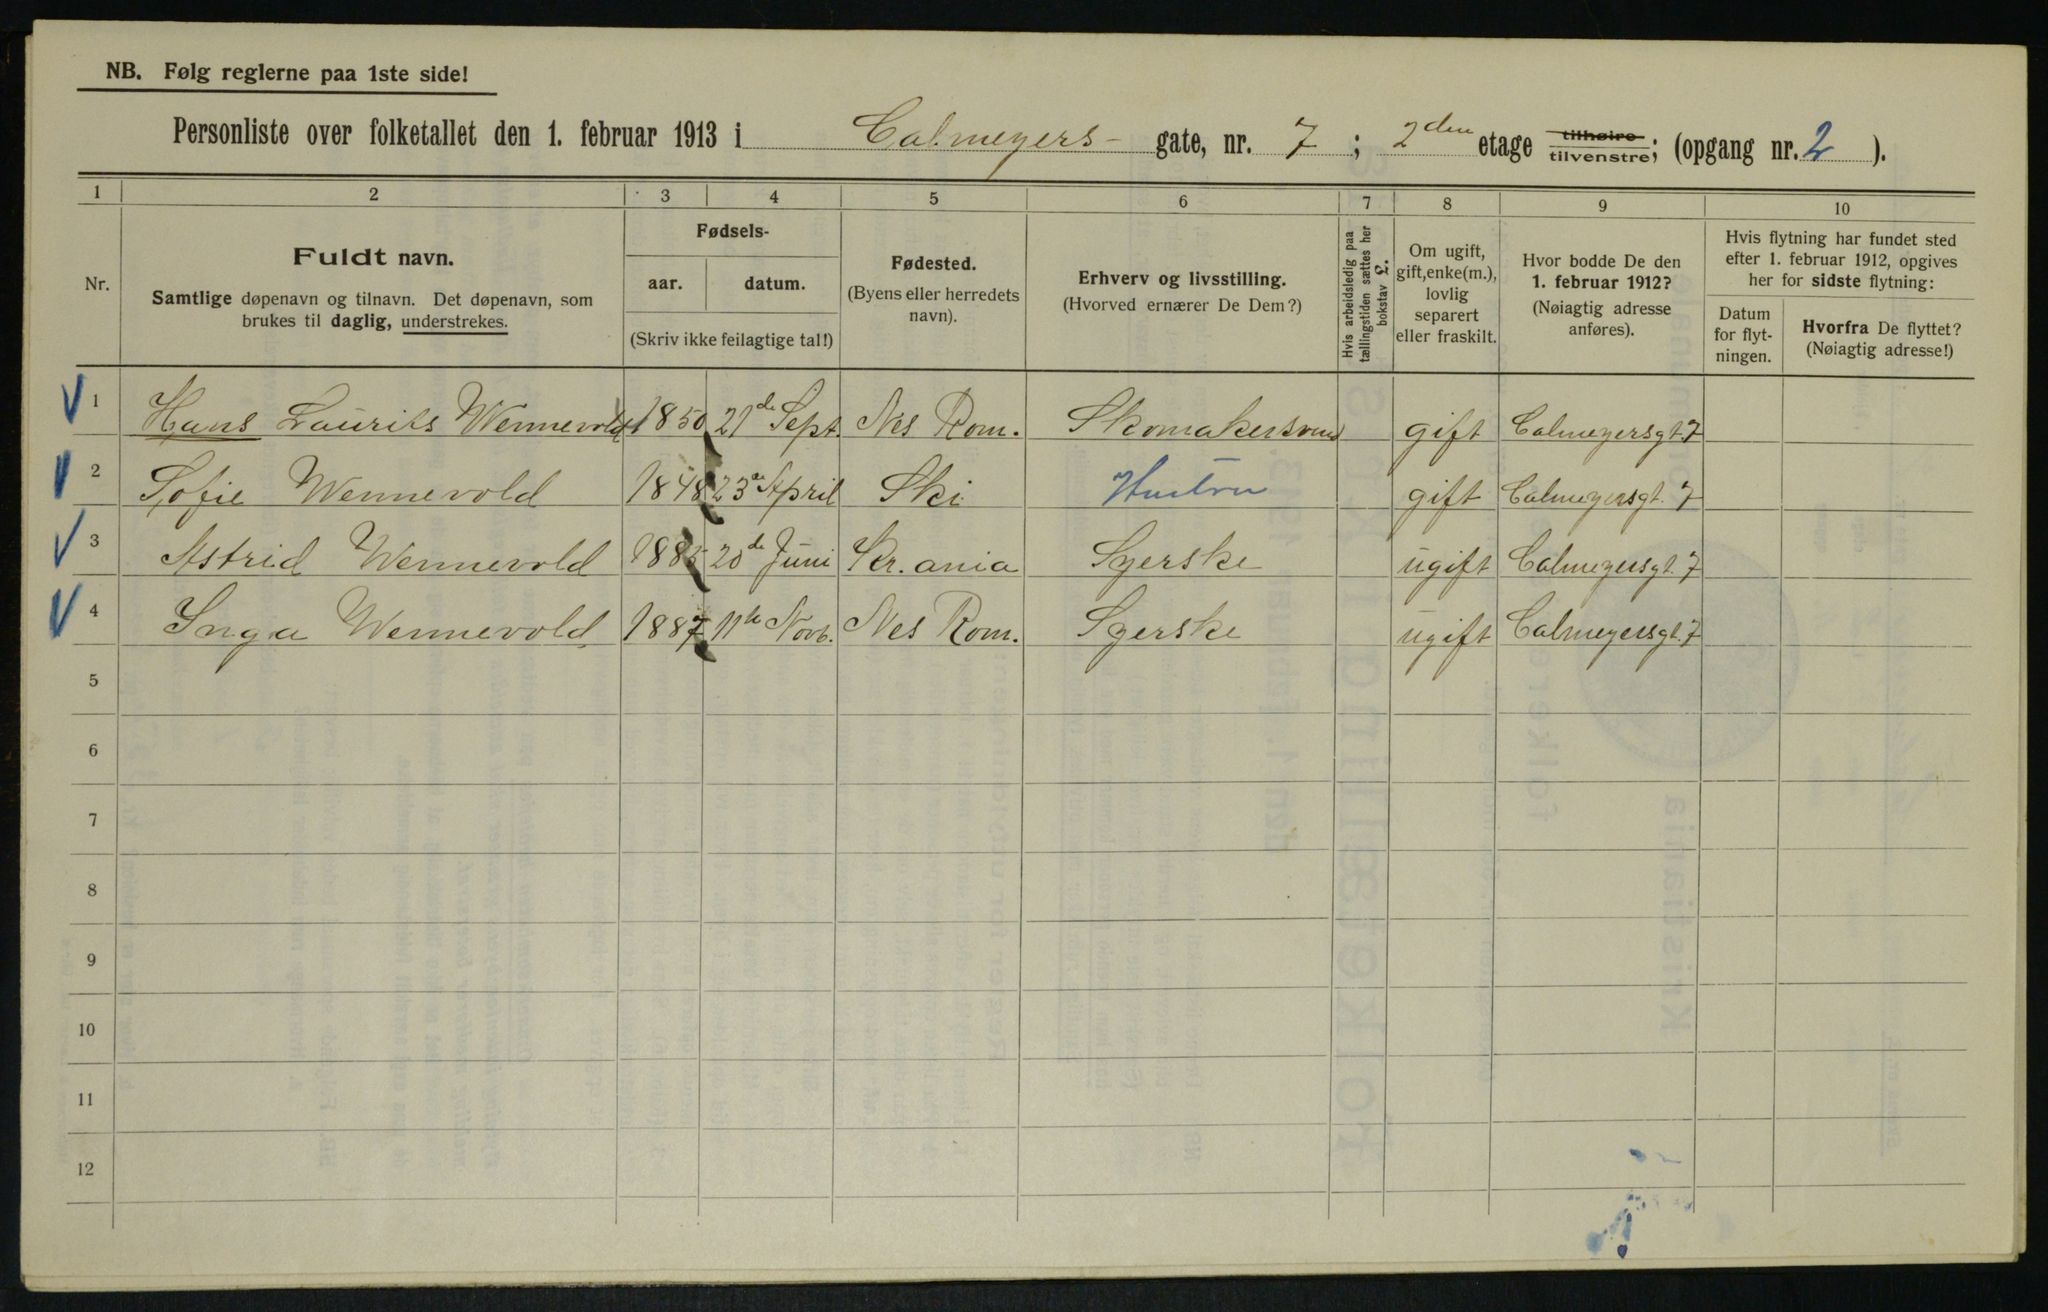 NB. Følg reglerne paa 1ste side!
Personliste over folketallet den 1. februar 1913 i Calmeyers- gate, nr. 7 ; 2den etage tilhøire tilvenstre; (opgang nr. 2 ).
1 2 3 4 5 6 7 8 9 10
Nr.
Fuldt navn.
Samtlige døpenavn og tilnavn. Det døpenavn, som
brukes til daglig, understrekes.
Fødsels-
aar. datum.
(Skriv ikke feilagtige tal!)
Fødested.
(Byens eller herredets
navn).
Erhverv og livsstilling.
(Hvorved ernærer De Dem?)
Hvis arbeidsledig paa
tællingstiden sættes her
bokstav £.
Om ugift,
gift, enke(m.),
lovlig
separert
eller fraskilt.
Hvor bodde De den
1. februar 1912?
(Nøiagtig adresse
anføres).
Hvis flytning har fundet sted
efter 1. februar 1912, opgives
her for sidste flytning:
Datum
for flyt-
ningen.
Hvorfra De flyttet?
(Nøiagtig adresse!)
1 Hans Laurits Wennevold 1850 21de Sept. Nes Rom. gift Calmeyersgt. 7
2 Sofie Wennevold 1848 23de April Ski Hustru gift Calmeyersgt. 7
3 Astrid Wennevold 1885 20de Juni Kr.ania Syerske ugift Calmeyersgt. 7
4 Inga Wennevold 1887 11te Novb. Nes Rom. Syerske ugift Calmeyersgt. 7
5
6
7
8
9
10
11
12